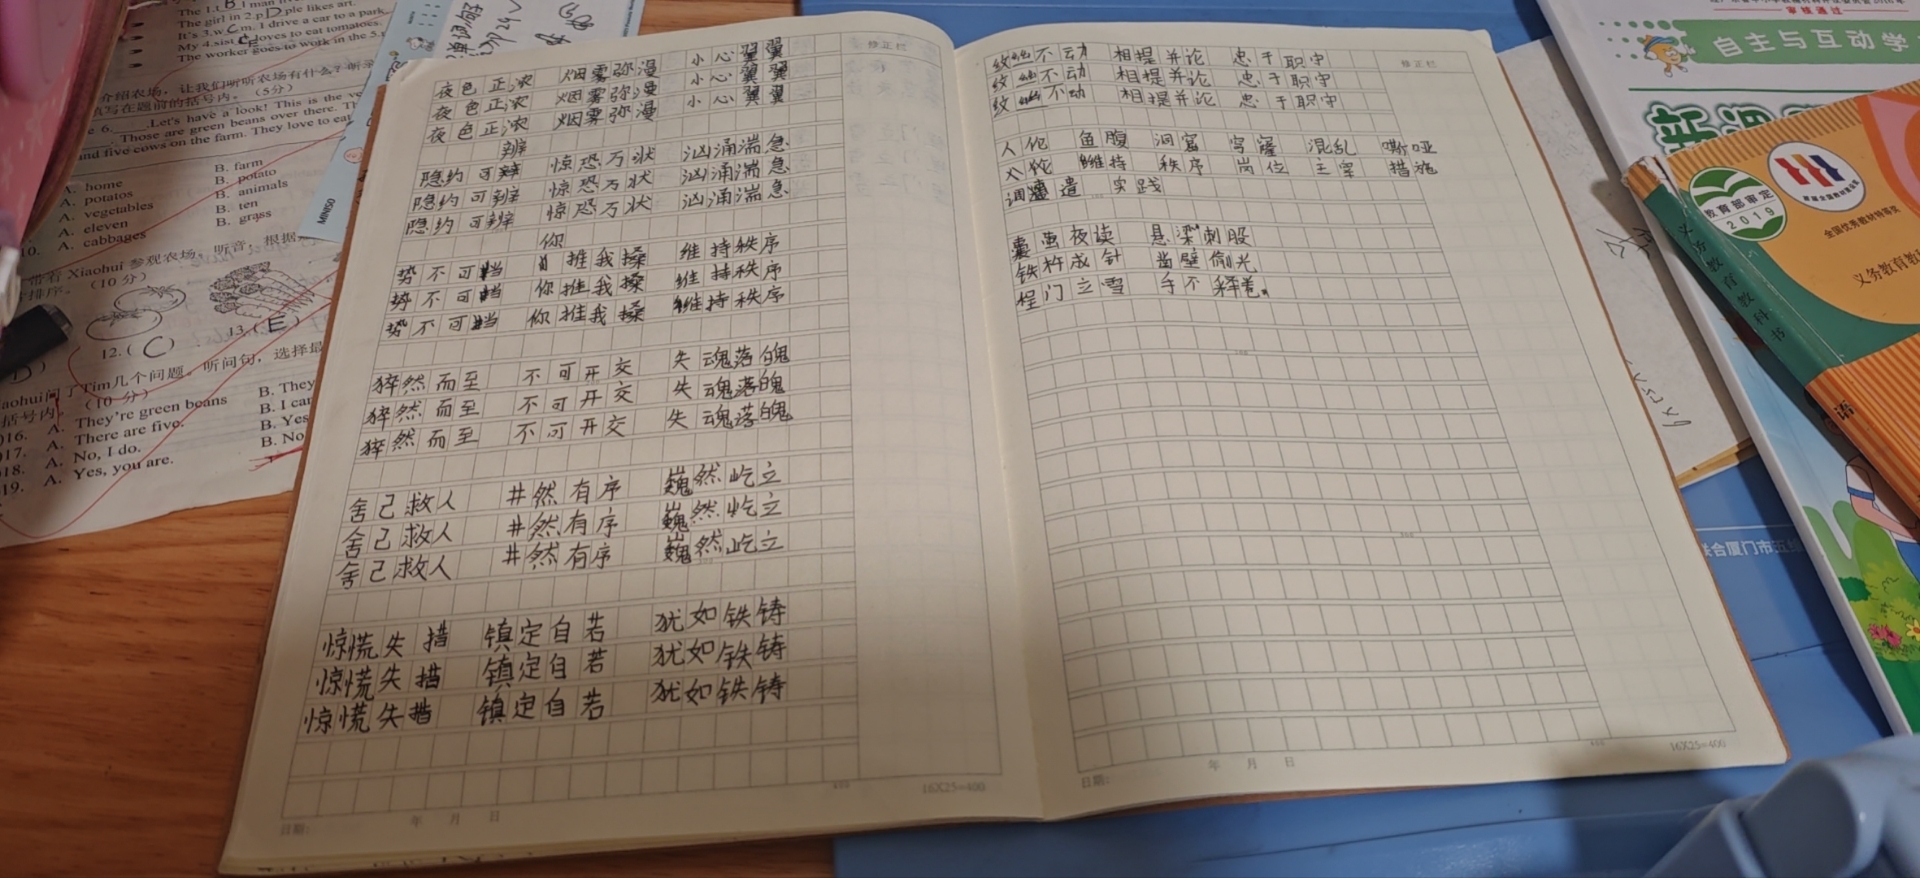 The girl in 2.p D ple likes art.
It's 3.w C m. I drive a car to a park.
My 4.sist C loves to eat tomatoes.
The worker goes to work in the 5.
介绍农场，让我们听听农场有什么？听录
填写在题前的括号内。（5分）
6. Let's have a look! This is the ve
Those are green beans over there. Th
and five cows on the farm. They love to eat
A. home B. farm
A. potatos B. potato
A. vegetables B. animals
A. eleven B. ten
10. A. cabbages B. grass
带着 Xiaohui 参观农场，听音，根据
排序。（10分）
12.( C ) 13.( E )
aohui问了Tim几个问题。听问句，选择最
括号内。（10分）
16. A. They're green beans B. They
17. A. There are five. B. I can
18. A. No, I do. B. Yes
19. A. Yes, you are. B. No
MINISO
修正栏
夜色正浓 烟雾弥漫 小心翼翼
夜色正浓 烟雾弥漫 小心翼翼
夜色正浓 烟雾弥漫 小心翼翼
辨
隐约可辨 惊恐万状 汹涌湍急
隐约可辨 惊恐万状 汹涌湍急
隐约可辨 惊恐万状 汹涌湍急
你
势不可挡 推我搡 维持秩序
势不可挡 你推我搡 维持秩序
势不可挡 你推我搡 维持秩序
猝然而至 不可开交 失魂落魄
猝然而至 不可开交 失魂落魄
猝然而至 不可开交 失魂落魄
舍己救人 井然有序 巍然屹立
舍己救人 井然有序 巍然屹立
舍己救人 井然有序 巍然屹立
惊慌失措 镇定自若 犹如铁铸
惊慌失措 镇定自若 犹如铁铸
惊慌失措 镇定自若 犹如铁铸
16X25=400
日期： 年 月 日
修正栏
纹丝不动 相提并论 忠于职守
纹丝不动 相提并论 忠于职守
纹丝不动 相提并论 忠于职守
人伦 鱼腹 洞窟 穹窿 混乱 嘶哑
人伦 维持 秩序 岗位 主宰 措施
调遣 实践
囊萤夜读 悬梁刺股
铁杵成针 凿壁偷光
程门立雪 手不释卷。
16X25=400
日期： 年 月 日
审核通过
自主与互动学
新课
教育部审定
2019
全国优秀教材特等奖
义务教育教
义务教育教科书
语
联合厦门市五